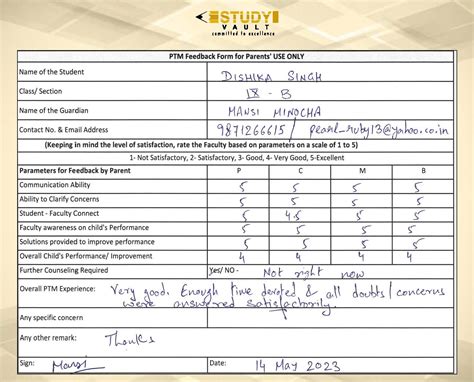 STUDY
VAULT
committed to excellence
PTM Feedback Form for Parents' USE ONLY
Name of the Student DISHIKA SINGH
Class/ Section IX - B
Name of the Guardian MANSI MINOCHA
Contact No. & Email Address 9871266615 / pearl_ruby13@yahoo.co.in
(Keeping in mind the level of satisfaction, rate the Faculty based on parameters on a scale of 1 to 5)
1- Not Satisfactory, 2- Satisfactory, 3- Good, 4- Very Good, 5-Excellent
Parameters for Feedback by Parent P C M B
Communication Ability 5 5 5 5
Ability to Clarify Concerns 5 5 5 5
Student - Faculty Connect 5 4.5 5 5
Faculty awareness on child's Performance 5 5 5 5
Solutions provided to improve performance 5 5 5 5
Overall Child's Performance/ Improvement 4 4 4 4
Further Counseling Required Yes/ NO - Not right now
Overall PTM Experience: Very good. Enough time devoted & all doubts/concerns
were answered satisfactorily.
Any specific concern
Any other remark: Thanks
Sign: Mansi Date: 14 May 2023